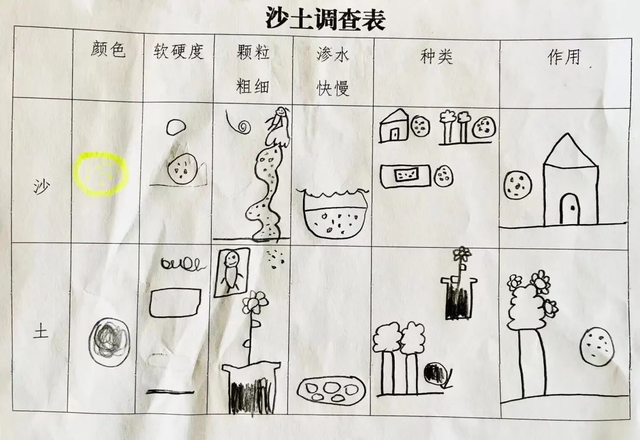 沙土调查表
颜色
软硬度
颗粒
粗细
渗水
快慢
种类
作用
沙
土